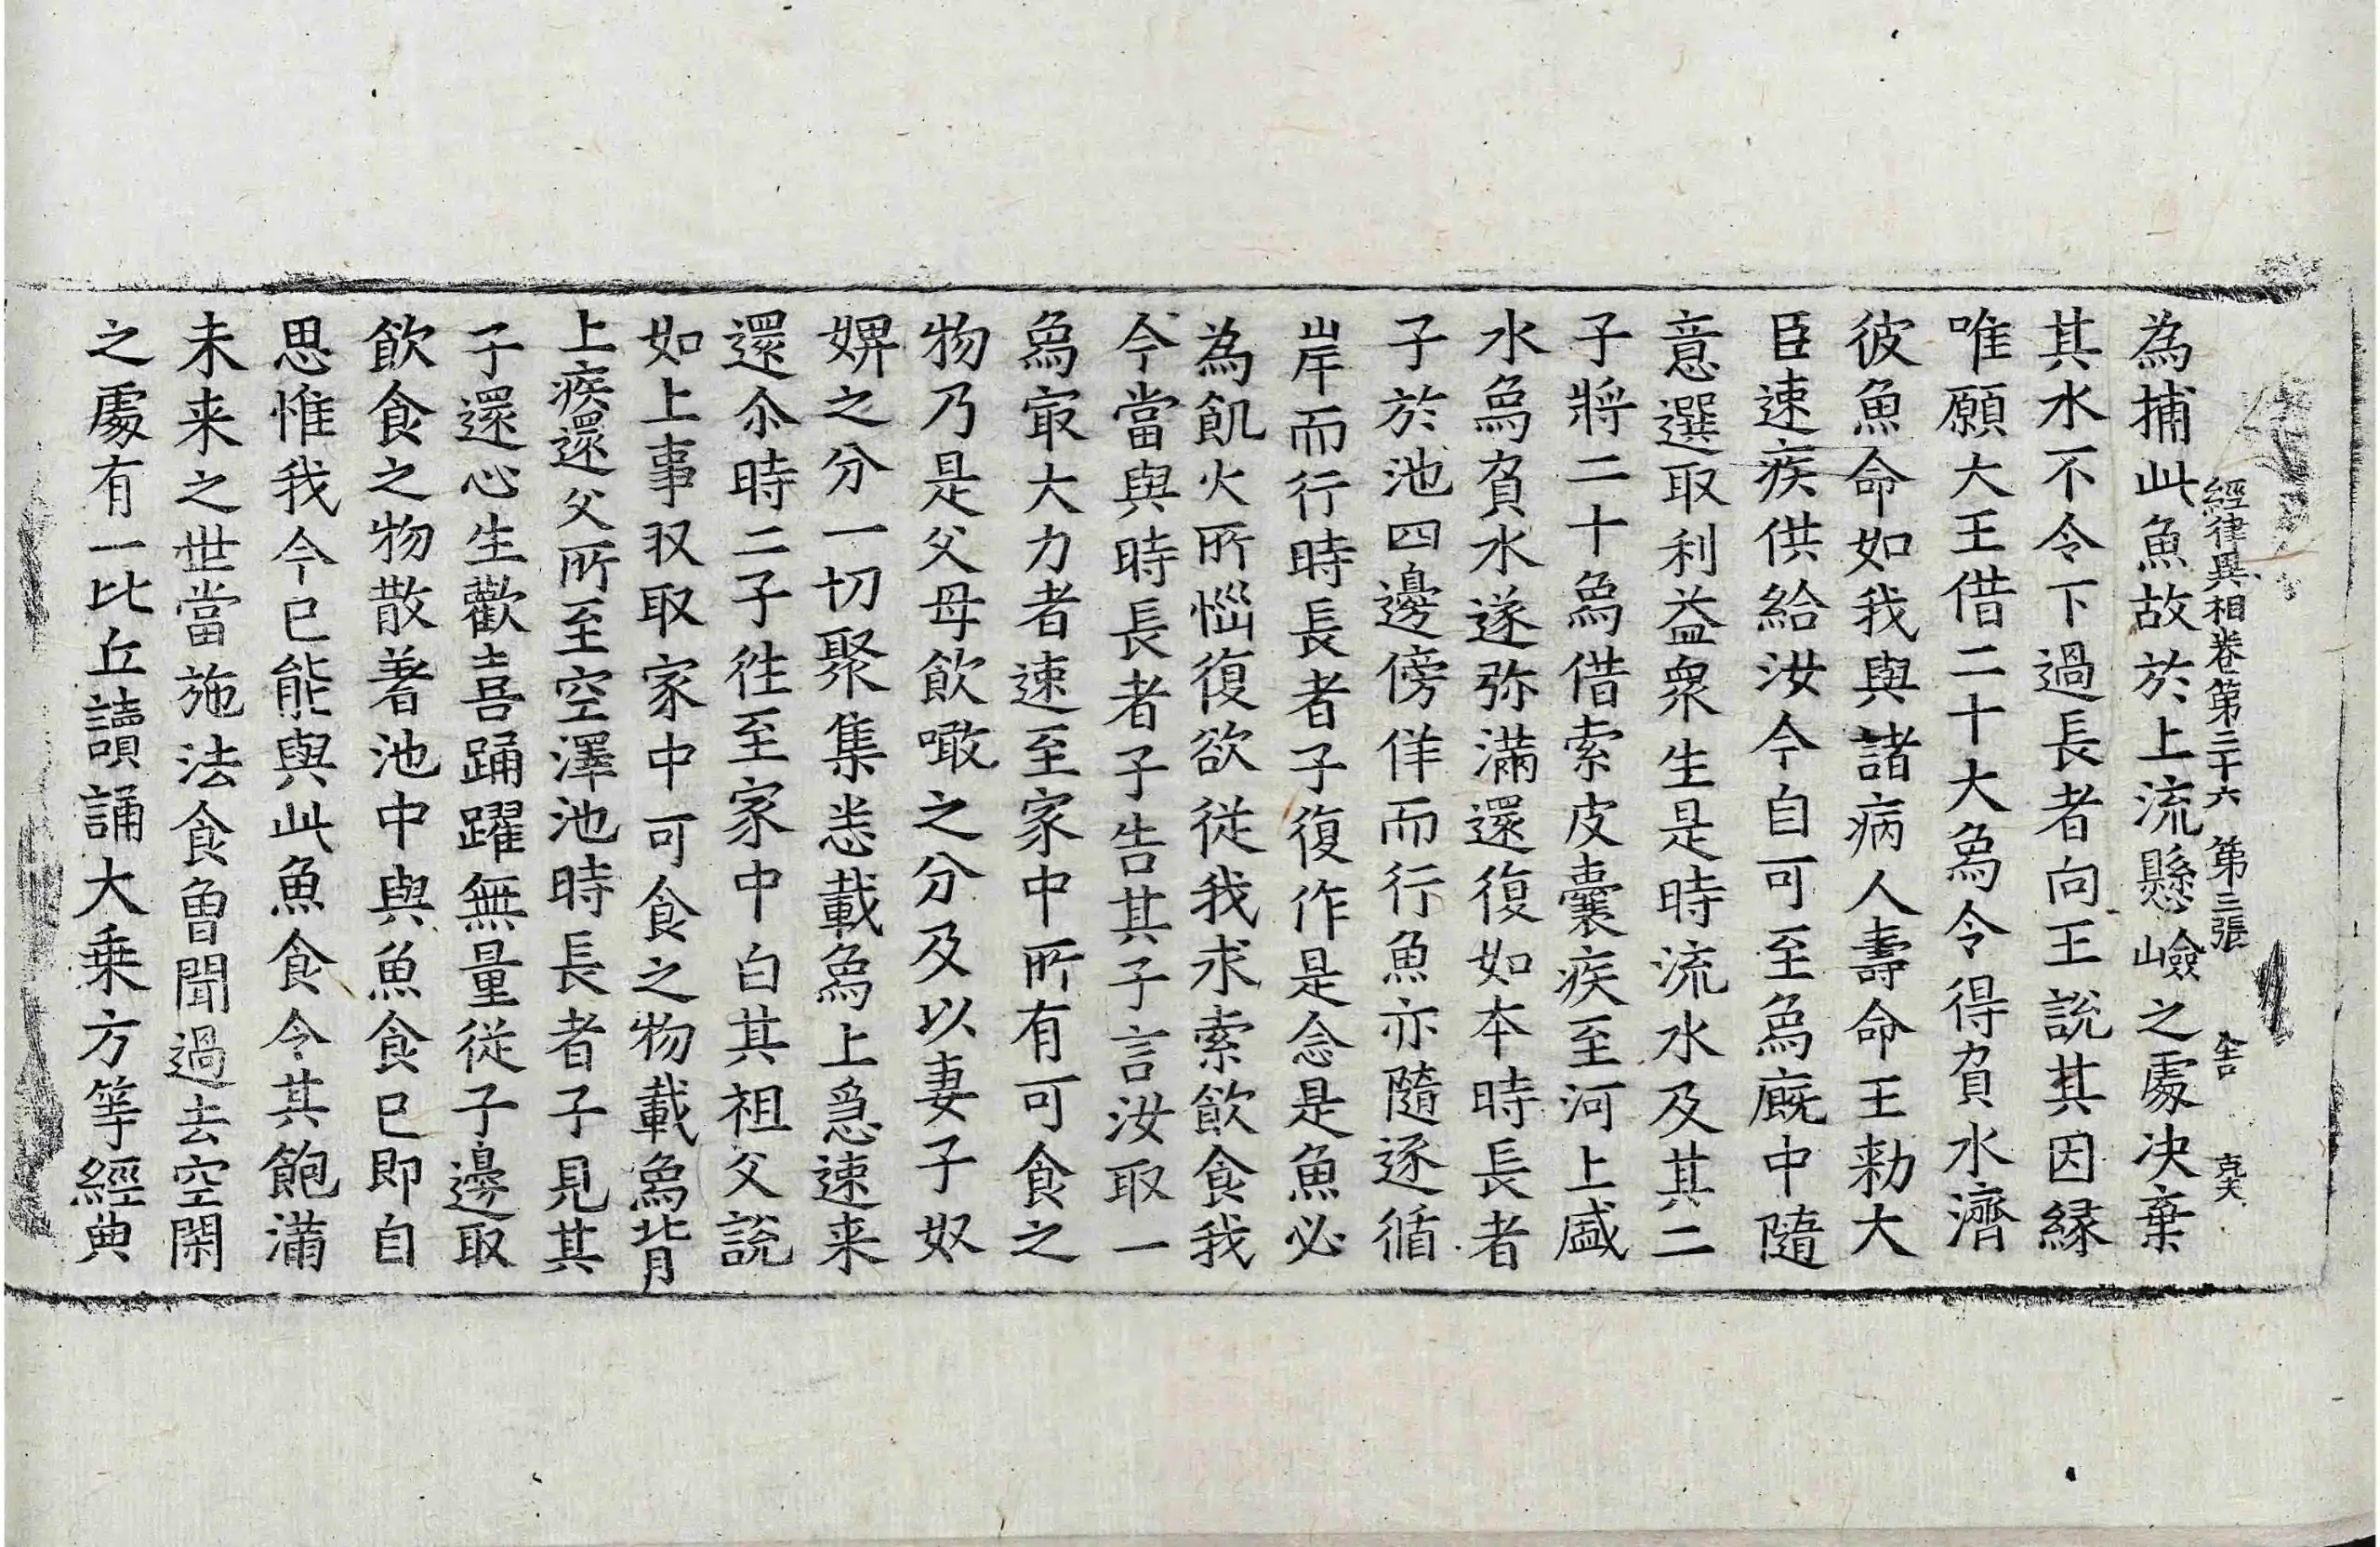 經律異相卷第三十六 第三張 舍
為捕此魚故於上流懸嶮之處决棄
其水不令下過長者向王說其因緣
唯願大王借二十大烏令得負水濟
彼魚命如我與諸病人壽命王勑大
臣速疾供給汝今自可至烏廄中隨
意選取利益衆生是時流水及其二
子將二十烏借索皮囊疾至河上盛
水烏負水遂弥滿還復如本時長者
子於池四邊傍佯而行魚亦隨逐循
岸而行時長者子復作是念是魚必
為飢火所惱復欲從我求索飲食我
今當與時長者子告其子言汝取一
烏㝡大力者速至家中所有可食之
物乃是父母飲噉之分及以妻子奴
婢之分一切聚集悉載烏上急速来
還尒時二子徃至家中白其祖父說
如上事収取家中可食之物載烏背
上疾還父所至空澤池時長者子見其
子還心生歡喜踊躍無量從子邊取
飲食之物散著池中與魚食已即自
思惟我今已能與此魚食令其飽滿
未来之世當施法食曾聞過去空閑
之處有一比丘讀誦大乗方等經典